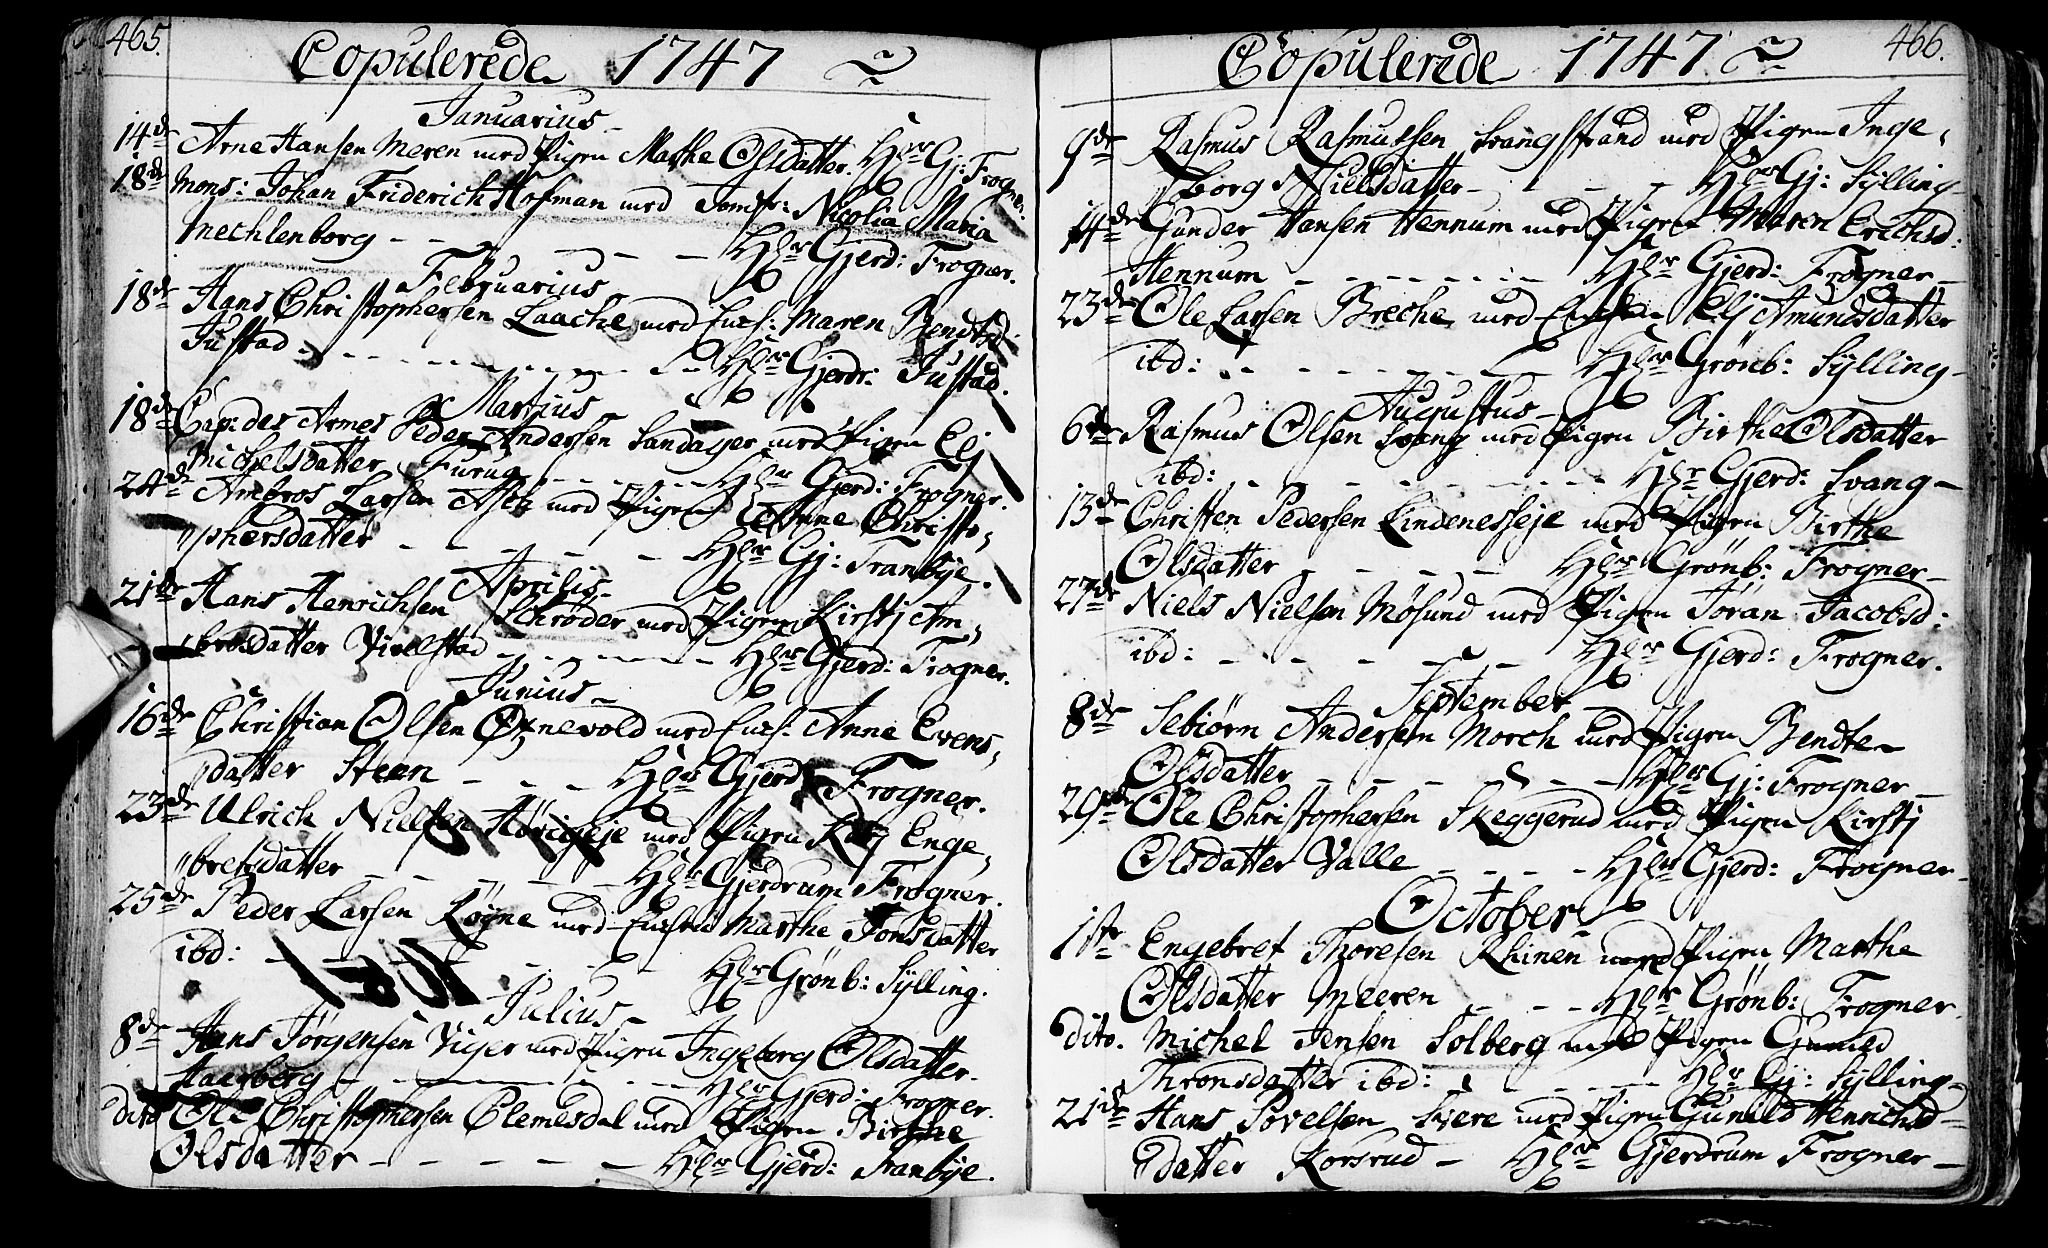 465.
Copulerede 1747
Januarius
14de Arne Hansen Meren med Pigen Marthe Olsdatter. Hlr Gj: Frogner.
18de Mons: Johan Friderich Hofman med Jomfr: Nicolia Maria
Mechlenborg - - - - - Hlr Gjerd: Frogner.
Februarius
18de Hans Christophersen Laache med Ench: Maren Bendtsd:
Justad - - - - - Hlr Gjerdr: Justad.
Martius
18de Cap: des Armes Peder Andersen Sandager med Pigen Elj
Michelsdatter Furug - - - - - Hlr Gjerd: Frogner.
24de Ambros Larsen Aseb med Pigen Anne Christo„
„phersdatter - - - - - Hlr Gj: Tranbye.
Aprilis
21de Hans Henrichsen Schrøder med Pigen Kirstj Am„
„brosdatter Vivelstad - - - - - Hlr Gjerd: Frogner.
Junius
16de Christian Olsen Ørnevold med Ench: Anne Evens„
„datter Steen - - - Hlr Gjerd: Frogner.
23de Ulrich Nielsen Hørigeje med Pigen Enge„
„bretsdatter - - - - - Hlr Gjerdrum Frogner.
25de Peder Larsen Løyne med Enchen Marthe Jonsdatter
ibd: - - - - - Hlr Grønb: Sylling.
Julius
8de Hans Jørgensen Viger med Pigen Ingeborg Olsdatter
Haagberg - - - - - Hlr Gjerd: Frogner.
dito Ole Christophersen Clemesdal med Pigen Birthe
Olsdatter - - - - - Hlr Gjerd: Tranbye.
466.
Copulerede 1747
9de Rasmus Rasmussen Svangstrand med Pigen Inge„
„borg Nielsdatter - - - - Hlr Gj: Sylling
14de Gunder Hansen Hennum med Pigen Maren Erichsd:
Hennum - - - - - Hlr Gjerd: Frogner
23de Ole Larsen Breche med Enchen Elj Amundsdatter
ibd: - - - - - Hlr Grønb: Sylling
Augustus
6te Rasmus Olsen Svang med Pigen Birthe Olsdatter
ibd: - - - - - Hlr Gjerd: Svang
13de Christen Pedersen Lindenesseje med Pigen Birthe
Olsdatter - - - - Hlr Grønb: Frogner
27de Niels Nielsen Møsund med Pigen Jøran Jacobsd:
ibd: - - - - - Hlr Gjerd: Frogner.
September
8de Sebiørn Andersen Morch med Pigen Bendte
Olsdatter - - - - - Hlr Gj: Frogner
29de Ole Christophersen Skeggerud med Pigen Kirstj
Olsdatter Valle - - - - Hlr Gjerd: Frogner
October
1ste Engebret Thoresen Rhinen med Pigen Marthe
Olsdatter Meeren - - - Hlr Grønb: Frogner
dito. Michel Jensen Solberg med Pigen Guneld
Thronsdatter ibd: - - - - Hlr Gj: Sylling
21de Hans Povelsen Svere med Pigen Guneld Henrichsd
datter Korsrud - Hlr Gjerdrum Frogner